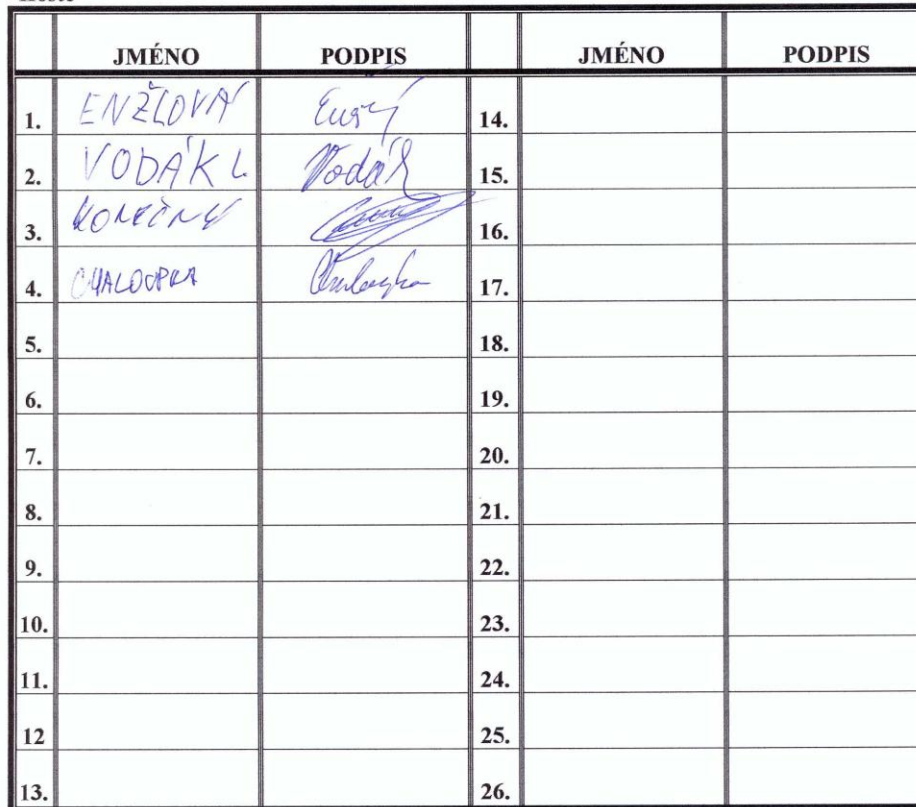 JMÉNO PODPIS JMÉNO PODPIS
1. ENŽLOVÁ 14.
2. VODÁK L. Vodák 15.
3. KONEČNÝ 16.
4. CHALOUPKA Chaloupka 17.
5. 18.
6. 19.
7. 20.
8. 21.
9. 22.
10. 23.
11. 24.
12 25.
13. 26.